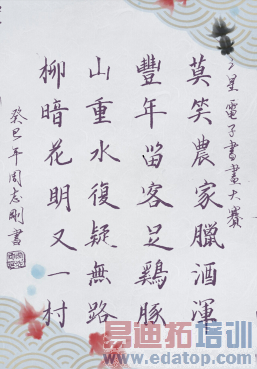 之星電子書畫大賽
莫笑農家臘酒渾
豐年留客足鷄豚
山重水復疑無路
柳暗花明又一村
癸巳年周志剛書
易迪拓培训
www.edatop.com